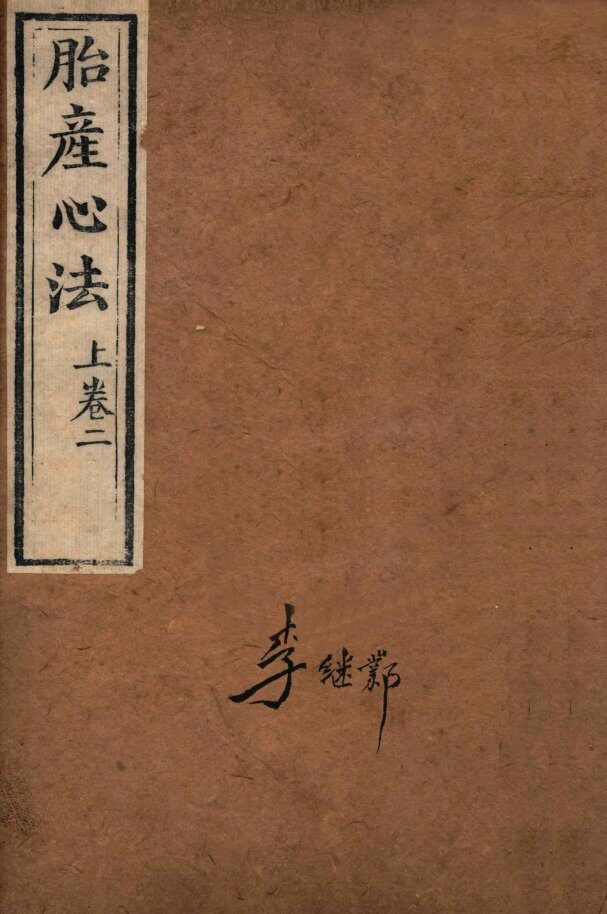 胎產心法
上卷二
李继鄴